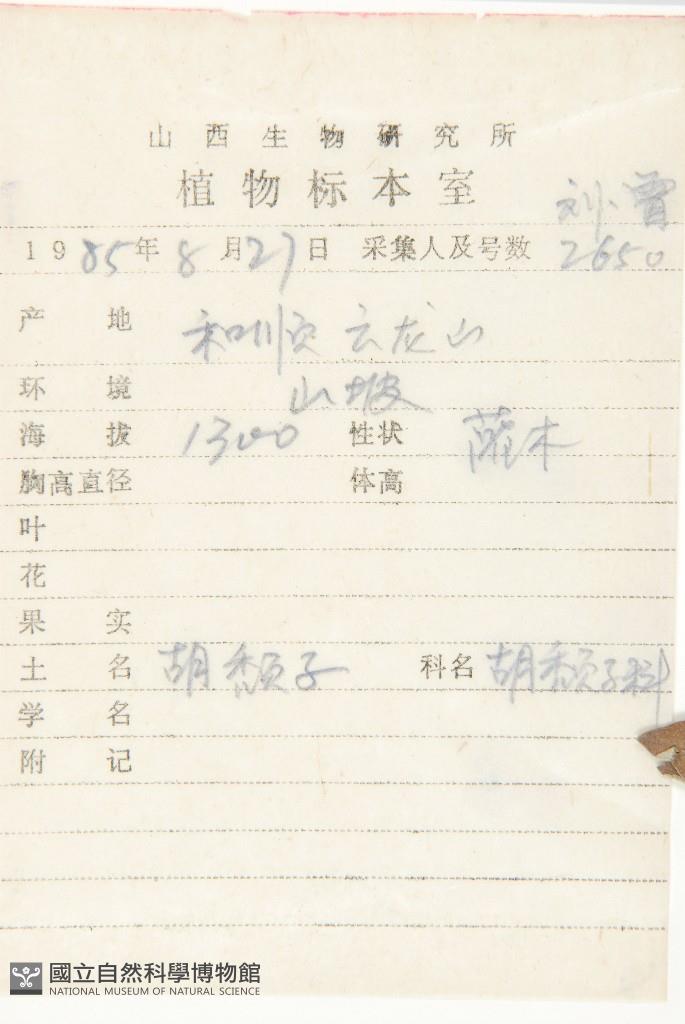 山西生物研究所
植物标本室
刘、曾
1985年8月27日 采集人及号数 2650
产地 和顺云龙山
环境 山坡
海拔 1300 性状 灌木
胸高直径 体高
叶
花
果实
土名 胡颓子 科名 胡颓子科
学名
附记
國立自然科學博物館
NATIONAL MUSEUM OF NATURAL SCIENCE